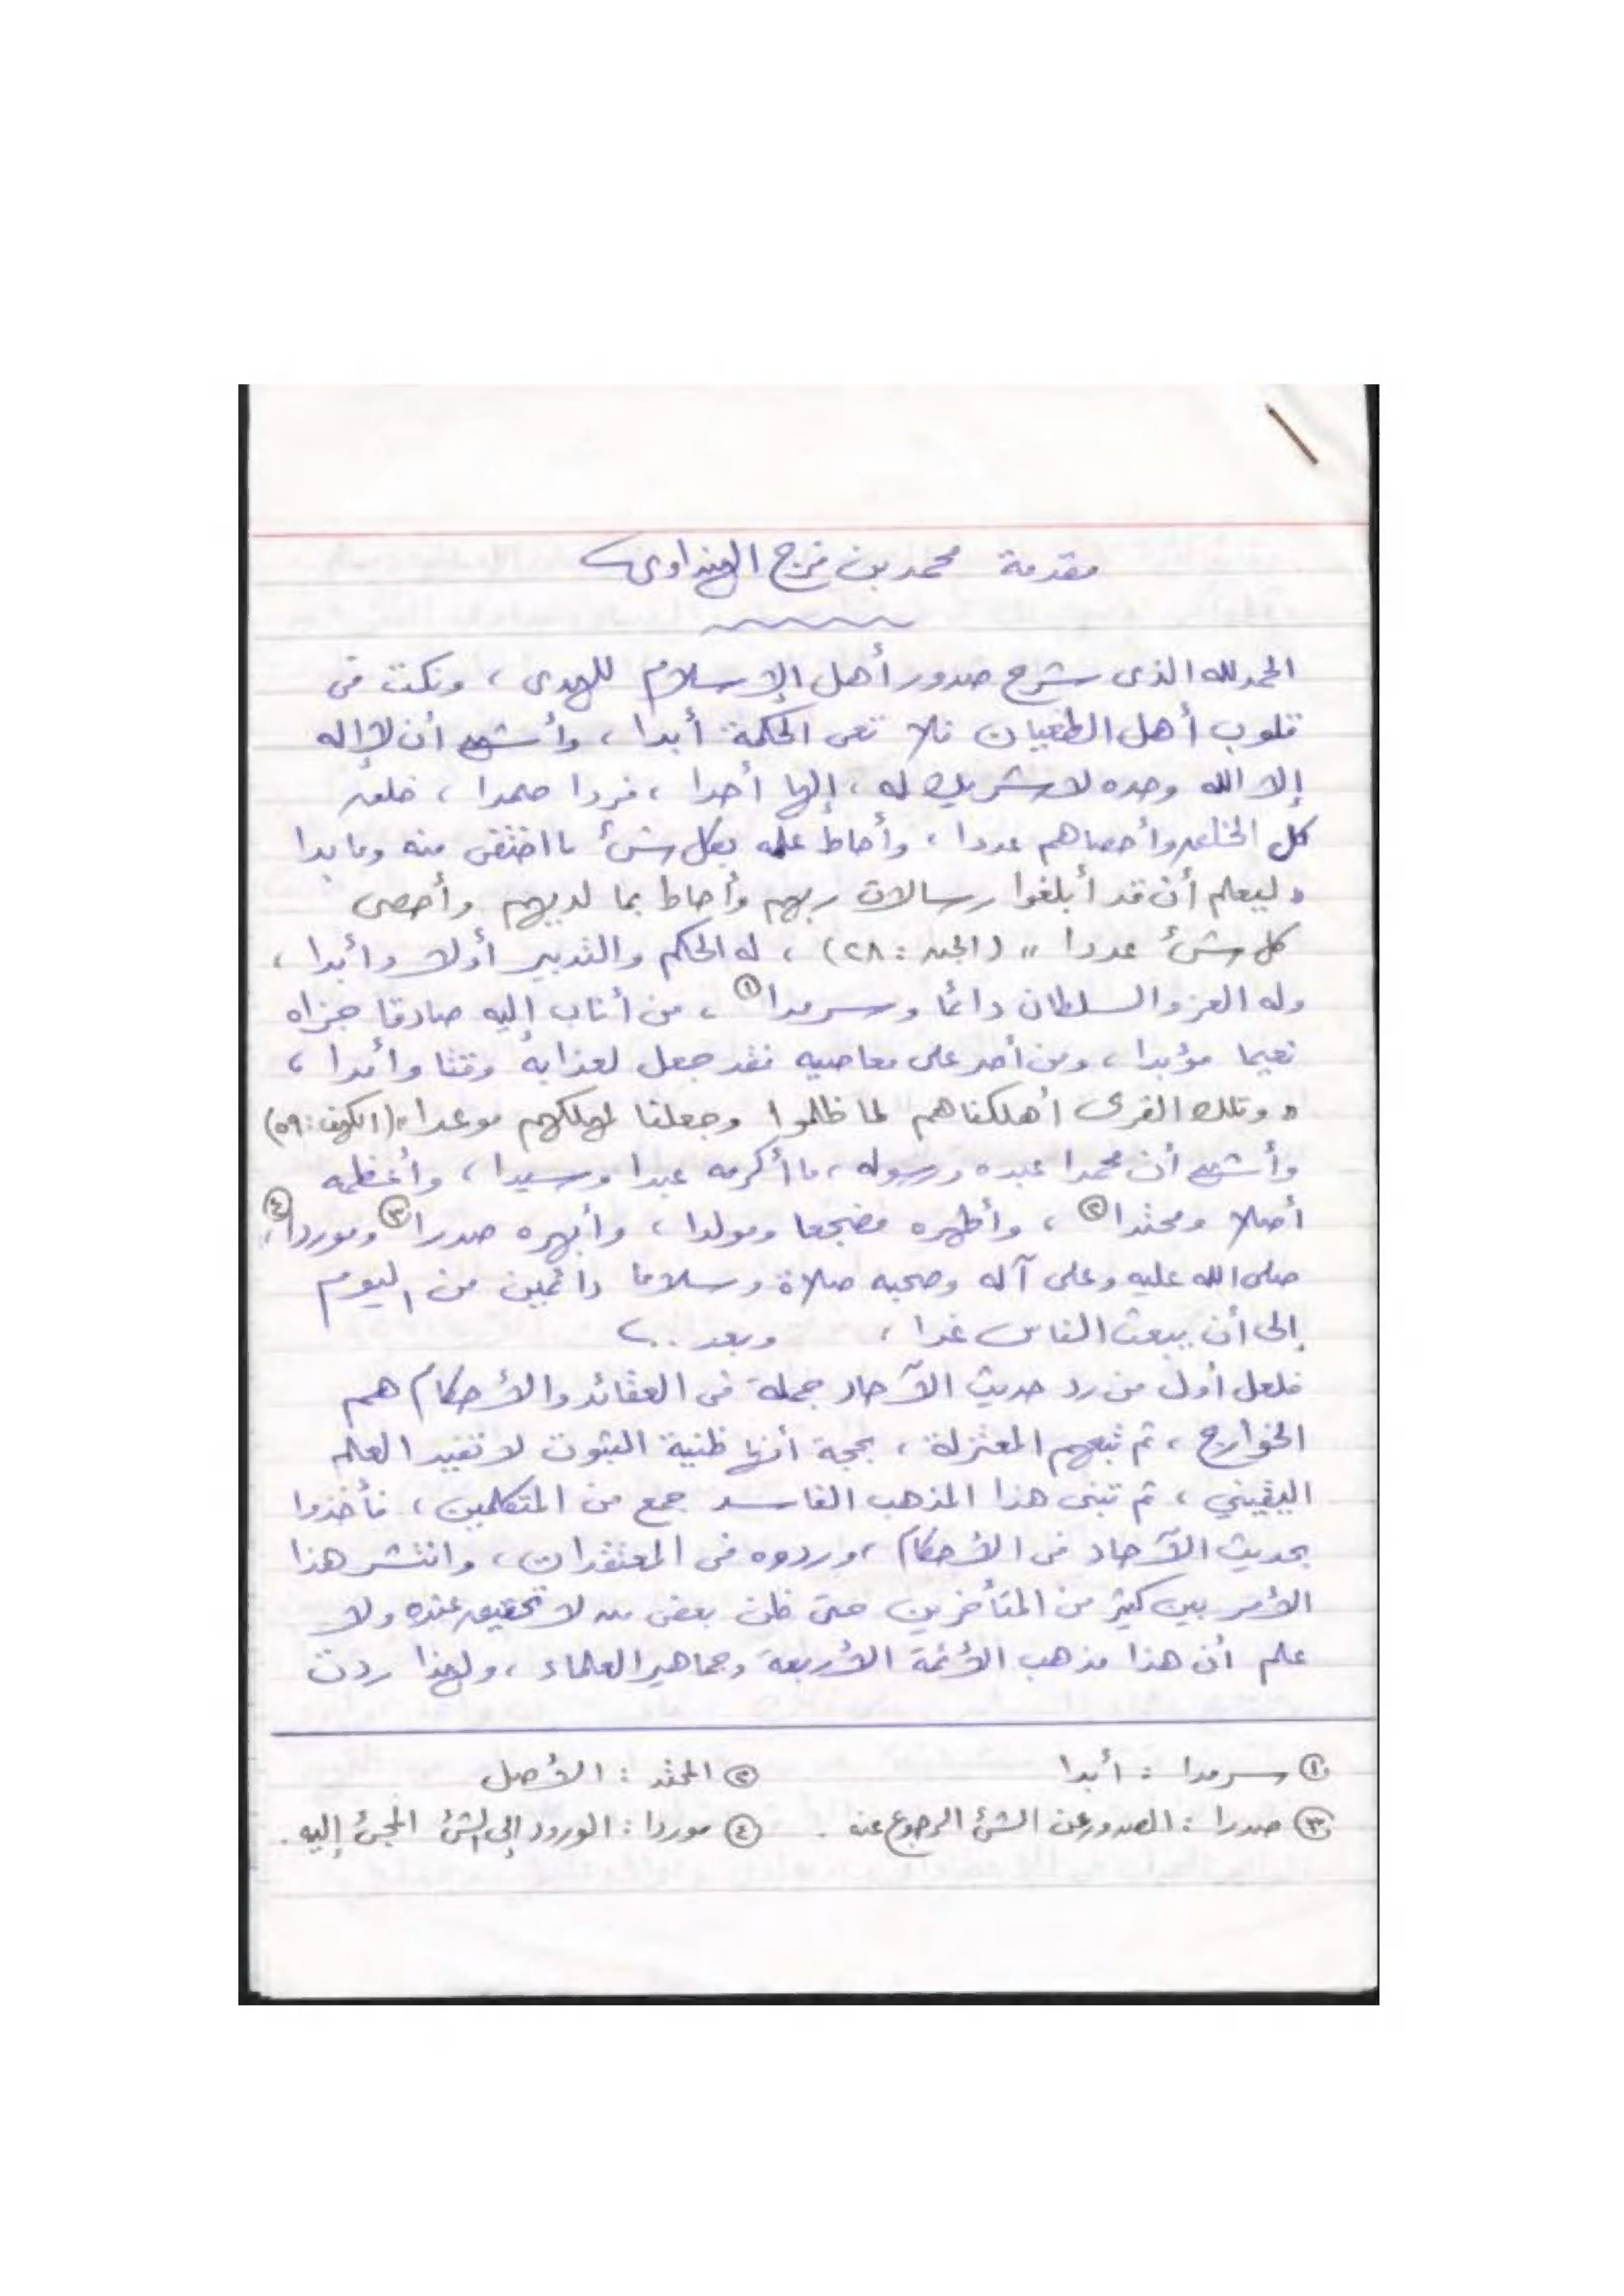 مقدمة محمد بن فرج الهنداوى
الحمد لله الذى شرح صدور أهل الإسلام للهدى ، ونكت فى
قلوب أهل الطغيان فلا تعى الحكمة أبدا ، وأشهد أن لا إله
إلا الله وحده لا شريك له ، إلها أحدا ، فردا صمدا ، خلق
كل الخلق وأحصاهم عددا ، وأحاط علمه بكل شئ ما اختفى منه وما بدا
" ليعلم أن قد أبلغوا رسالات ربهم وأحاط بما لديهم وأحصى
كل شئ عددا " (الجن : ٢٨) ، له الحكم والتدبير أولا وأبدا ،
وله العز والسلطان دائما وسرمدا ① ، من أناب إليه صادقا جزاه
نعيما مؤبدا ، ومن أصر على معاصيه فقد جعل لعذابه وقتا وأمدا ،
" وتلك القرى أهلكناهم لما ظلموا وجعلنا لمهلكهم موعدا " (الكهف : ٥٩)
وأشهد أن محمدا عبده ورسوله ، ما أكرمه عبدا وسيدا ، وأعظمه
أصلا ومحتدا ② ، وأطهره مضجعا ومولدا ، وأبهره صدرا ③ وموردا ④ ،
صلى الله عليه وعلى آله وصحبه صلاة وسلاما دائمين من اليوم
إلى أن يبعث الناس غدا ، وبعد ..
فلعل أول من رد حديث الآحاد جملة فى العقائد والأحكام هم
الخوارج ، ثم تبعهم المعتزلة ، بحجة أنها ظنية الثبوت لا تفيد العلم
اليقيني ، ثم تبنى هذا المذهب الفاسد جمع من المتكلمين ، فأخذوا
بحديث الآحاد فى الأحكام ، وردوه فى المعتقدات ، وانتشر هذا
الأمر بين كثير من المتأخرين حتى ظن بعض من لا تحقيق عنده ولا
علم أن هذا مذهب الأئمة الأربعة وجماهير العلماء ، ولهذا ردت
① سرمدا : أبدا ② المحتد : الأصل
③ صدرا : الصدور عن الشئ الرجوع عنه . ④ موردا : الورود إلى الشئ المجئ إليه .